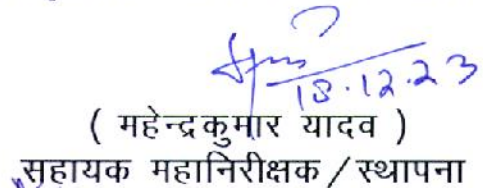 18.12.23
( महेन्द्रकुमार यादव )
सहायक महानिरीक्षक / स्थापना